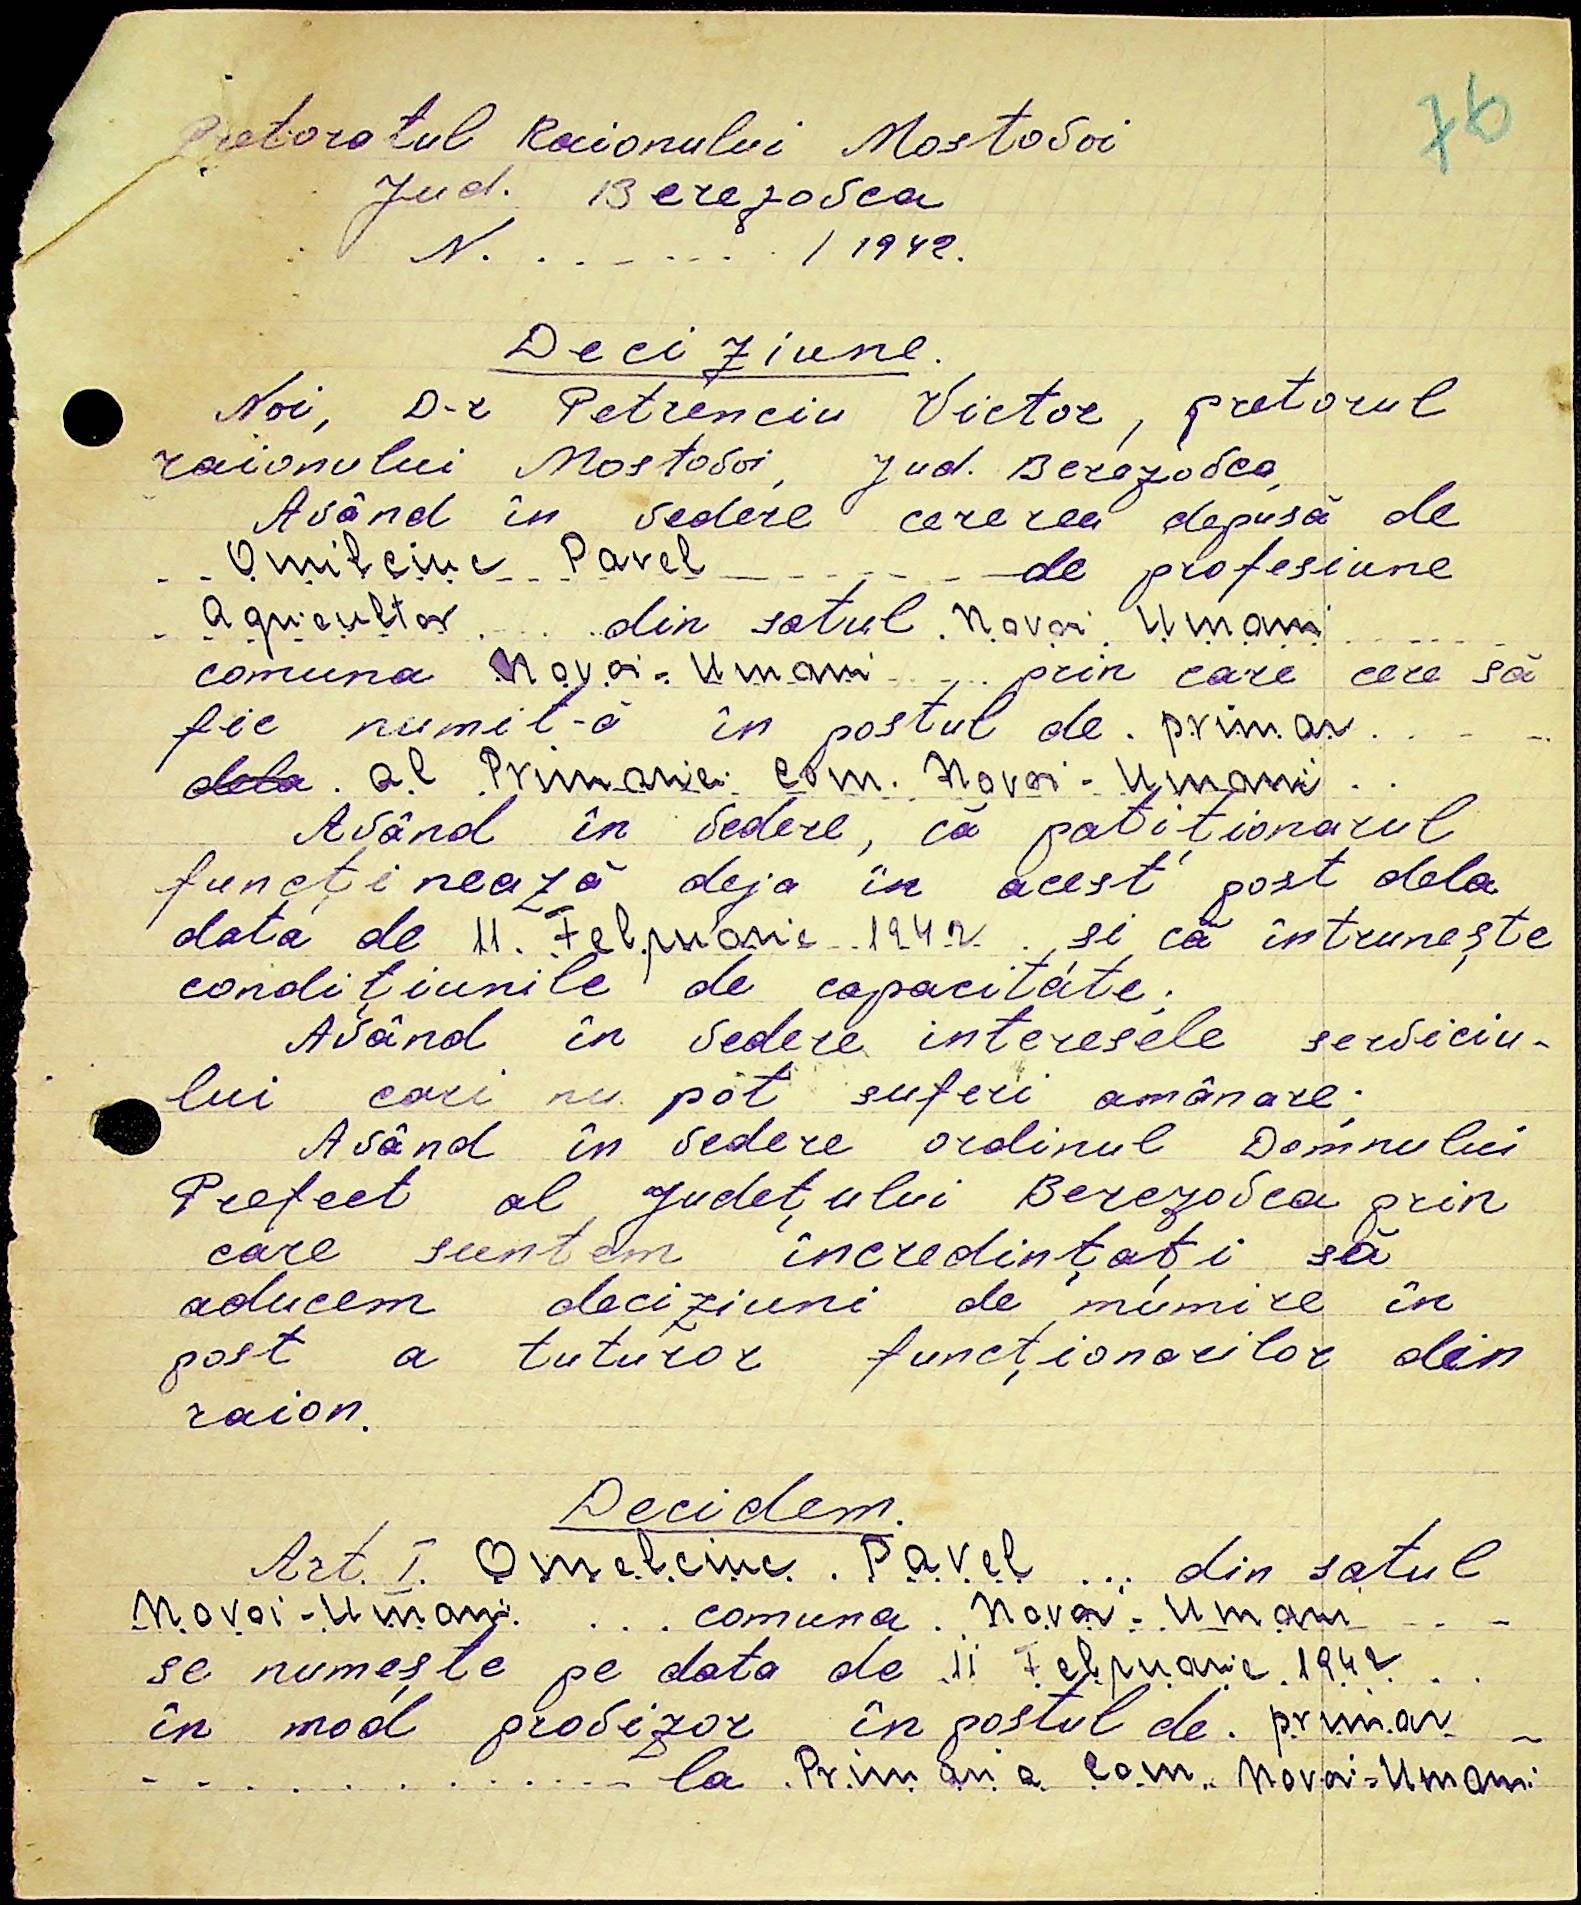 76
Pretoratul Raionului Mostovoi
Jud. Berezovca
N. . . . . . . . / 1942.
Deciziune.
Noi, D-r Petrenciu Victor, pretorul
raionului Mostovoi, Jud. Berezovca,
Având în vedere cererea depusă de
Omilciuc Pavel de profesiune
agricultor din satul Novoi Umani
comuna Novoi-Umani prin care cere să
fie numit-ă în postul de primar
dela al Primariei com. Novoi-Umani
Având în vedere, că patiționarul
funcținează deja în acest post dela
data de 11. Felpruarie 1942 și că întrunește
condițiunile de capacitate;
Având în vedere interesele serviciu-
lui cari nu pot suferi amânare;
Având în vedere ordinul Domnului
Prefect al Județului Berezovca prin
care suntem încredințați să
aducem deciziuni de numire în
post a tuturor funcționarilor din
raion.
Decidem.
Art. I. Omelciuc Pavel ... din satul
Novoi-Umani . . . comuna Novoi-Umani
se numește pe data de 11 Felpruarie 1942
în mod provizor în postul de primar
la Primaria com. Novoi-Umani